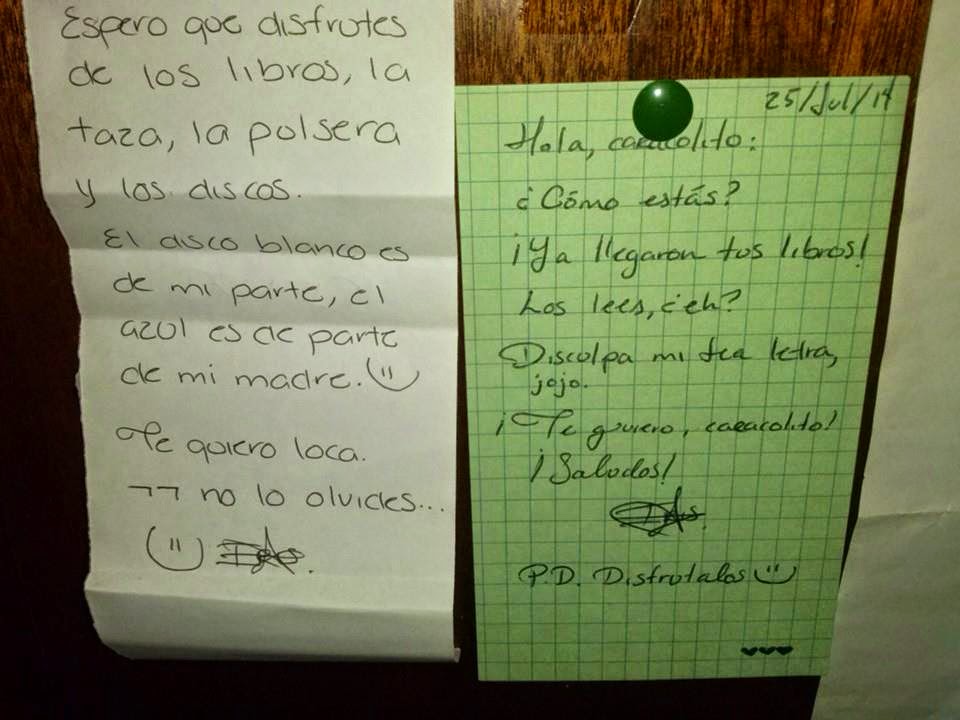 Espero que disfrutes
de los libros, la
taza, la polsera
y los discos.
El disco blanco es
de mi parte, el
azul es de parte
de mi madre.
Te quiero loca.
¬¬ no lo olvides...
25/Jul/14
Hola, caracolito:
¿Cómo estás?
¡Ya llegaron tus libros!
Los lees, ¿eh?
Disculpa mi fea letra,
jojo.
¡Te quiero, caracolito!
¡Saludos!
P.D. Disfrutalos